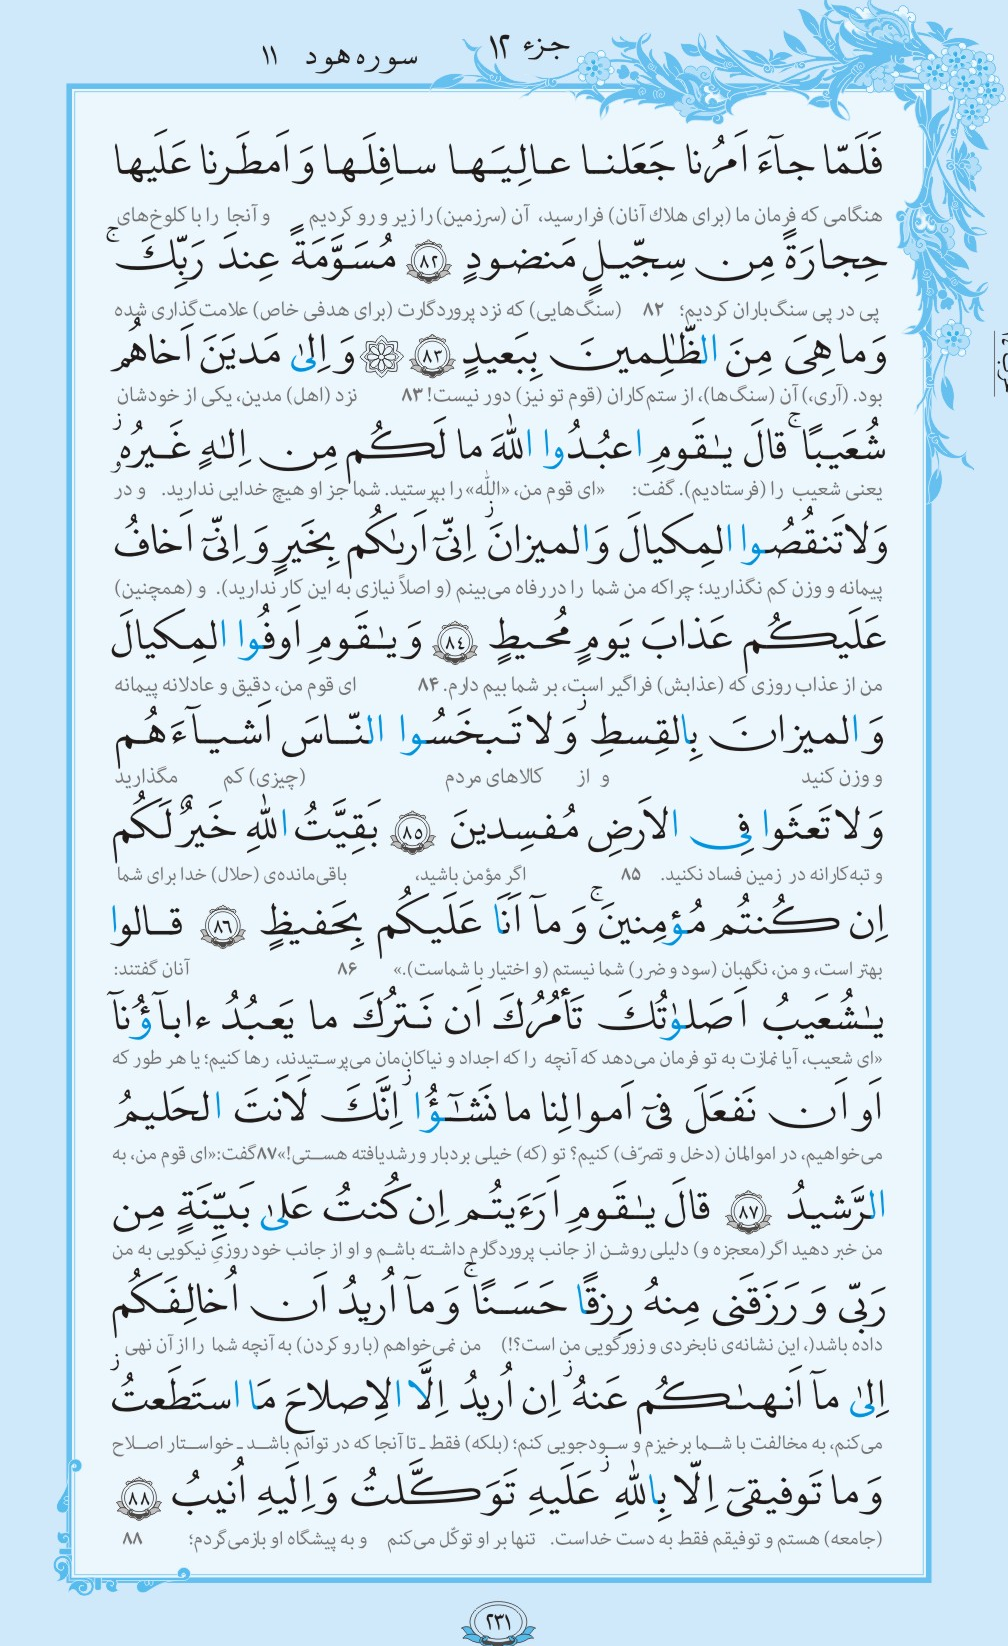 جزء ۱۲
سوره هود ۱۱
فَلَمّا جآءَ اَمرُنا جَعَلنا عالِيَها سافِلَها وَ اَمطَرنا عَلَيها
هنگامی که فرمان ما (برای هلاک آنان) فرا رسید، آن (سرزمین) را زیر و رو کردیم و آنجا را با کلوخ‌های
حِجارَةً مِن سِجّيلٍ مَنضودٍ ﴿۸۲﴾ مُسَوَّمَةً عِندَ رَبِّكَ ۚ
پی در پی سنگ‌باران کردیم؛ ۸۲ (سنگ‌هایی) که نزد پروردگارت (برای هدفی خاص) علامت‌گذاری شده
وَ ما هِیَ مِنَ الظّٰلِمينَ بِبَعيدٍ ﴿۸۳﴾ وَ اِلىٰ مَديَنَ اَخاهُم
بود. (آری،) آن (سنگ‌ها)، از ستم‌کاران (قوم تو نیز) دور نیست! ۸۳ نزد (اهل) مدین، یکی از خودشان
شُعَيبًا ۚ قالَ يٰقَومِ اعبُدُوا اللّٰهَ ما لَكُم مِن اِلٰهٍ غَيرُهُ ۥ ز
یعنی شعیب را (فرستادیم). گفت: «ای قوم من، «اللّٰه» را بپرستید. شما جز او هیچ خدایی ندارید. و در
وَ لا تَنقُصُوا المِكيالَ وَ الميزانَ ز اِنّىٓ اَرىٰكُم بِخَيرٍ وَ اِنّىٓ اَخافُ
پیمانه و وزن کم نگذارید؛ چراکه من شما را در رفاه می‌بینم (و اصلاً نیازی به این کار ندارید). و (همچنین)
عَلَيكُم عَذابَ يَومٍ مُحيطٍ ﴿۸٤﴾ وَ يٰقَومِ اَوفُوا المِكيالَ
من از عذاب روزی که (عذابش) فراگیر است، بر شما بیم دارم. ۸۴ ای قوم من، دقیق و عادلانه پیمانه
وَ الميزانَ بِالقِسطِ ز وَ لا تَبخَسُوا النّاسَ اَشيآءَهُم
و وزن کنید و از کالاهای مردم (چیزی) کم مگذارید
وَ لا تَعثَوا فِى الاَرضِ مُفسِدينَ ﴿۸۵﴾ بَقِيَّتُ اللّٰهِ خَيرٌ لَكُم
و تبه‌کارانه در زمین فساد نکنید. ۸۵ اگر مؤمن باشید، باقی‌مانده‌ی (حلال) خدا برای شما
اِن كُنتُم مُؤمِنينَ ۚ وَ مآ اَنَا عَلَيكُم بِحَفيظٍ ﴿۸۶﴾ قالوا
بهتر است، و من، نگهبان (سود و ضرر) شما نیستم (و اختیار با شماست).» ۸۶ آنان گفتند:
يٰشُعَيبُ اَصَلوٰتُكَ تَأمُرُكَ اَن نَترُكَ ما يَعبُدُ ءابآؤُنآ
«ای شعیب، آیا نمازت به تو فرمان می‌دهد که آنچه را که اجداد و نیاکان‌مان می‌پرستیدند، رها کنیم؛ یا هر طور که
اَو اَن نَفعَلَ فىٓ اَموالِنا ما نَشٰٓؤُا ز اِنَّكَ لَاَنتَ الحَليمُ
می‌خواهیم، در اموالمان (دخل و تصرّف) کنیم؟ تو (که) خیلی بردبار و رشدیافته هستی!» ۸۷ گفت: «ای قوم من، به
الرَّشيدُ ﴿۸۷﴾ قالَ يٰقَومِ اَرَءَيتُم اِن كُنتُ عَلىٰ بَيِّنَةٍ مِن
من خبر دهید اگر (معجزه و) دلیلی روشن از جانب پروردگارم داشته باشم و او از جانب خود روزیِ نیکویی به من
رَبّى وَ رَزَقَنى مِنهُ رِزقًا حَسَنًا ۚ وَ مآ اُريدُ اَن اُخالِفَكُم
داده باشد(، این نشانه‌ی نابخردی و زورگویی من است؟!) من نمی‌خواهم (با رو کردن) به آنچه شما را از آن نهی
اِلىٰ مآ اَنهىٰكُم عَنهُ ز اِن اُريدُ اِلَّا الاِصلاحَ مَا استَطَعتُ ز
می‌کنم، به مخالفت با شما برخیزم و سودجویی کنم؛ (بلکه) فقط ـ تا آنجا که در توانم باشد ـ خواستار اصلاح
وَ ما تَوفيقىٓ اِلّا بِاللّٰهِ ز عَلَيهِ تَوَكَّلتُ وَ اِلَيهِ اُنيبُ ﴿۸۸﴾
(جامعه) هستم و توفیقم فقط به دست خداست. تنها بر او توکّل می‌کنم و به پیشگاه او بازمی‌گردم؛ ۸۸
۲۳۱